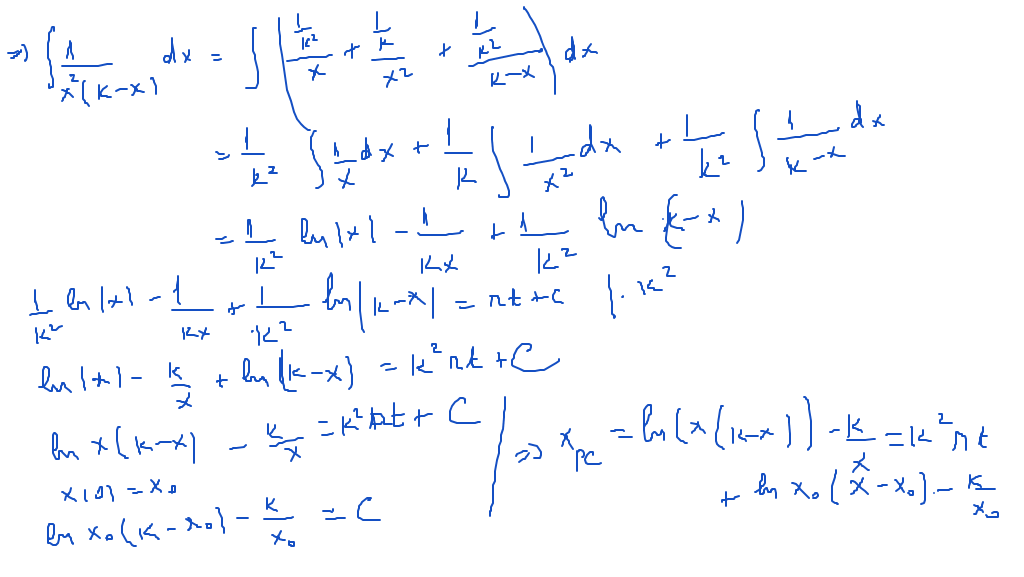 ⇒) ∫ 1/(x²(k-x)) dx = ∫ ( (1/k²)/x + (1/k)/x² + (1/k²)/(k-x) ) dx
= 1/k² ∫ 1/x dx + 1/k ∫ 1/x² dx + 1/k² ∫ 1/(k-x) dx
= 1/k² ln|x| - 1/(kx) + 1/k² ln(k-x)
1/k² ln|x| - 1/(kx) + 1/k² ln|k-x| = rt + C |·k²
ln|x| - k/x + ln(k-x) = k²rt + C
ln x(k-x) - k/x = k²rt + C
x(0) = x₀
ln x₀(k-x₀) - k/x₀ = C
⇒ x_pc = ln(x(k-x)) - k/x = k²rt
+ ln x₀(x-x₀) - k/x₀